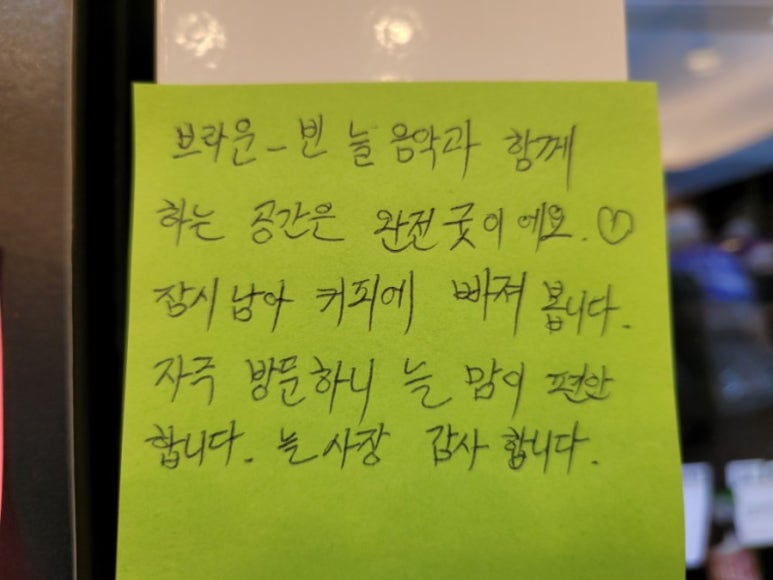 브라운-빈 늘 음악과 함께
하는 공간은 완전 굿이에요. ♡
잠시 남아 커피에 빠져 봅니다.
자극 방문하니 늘 맘이 편안
합니다. 늘 사장 감사 합니다.